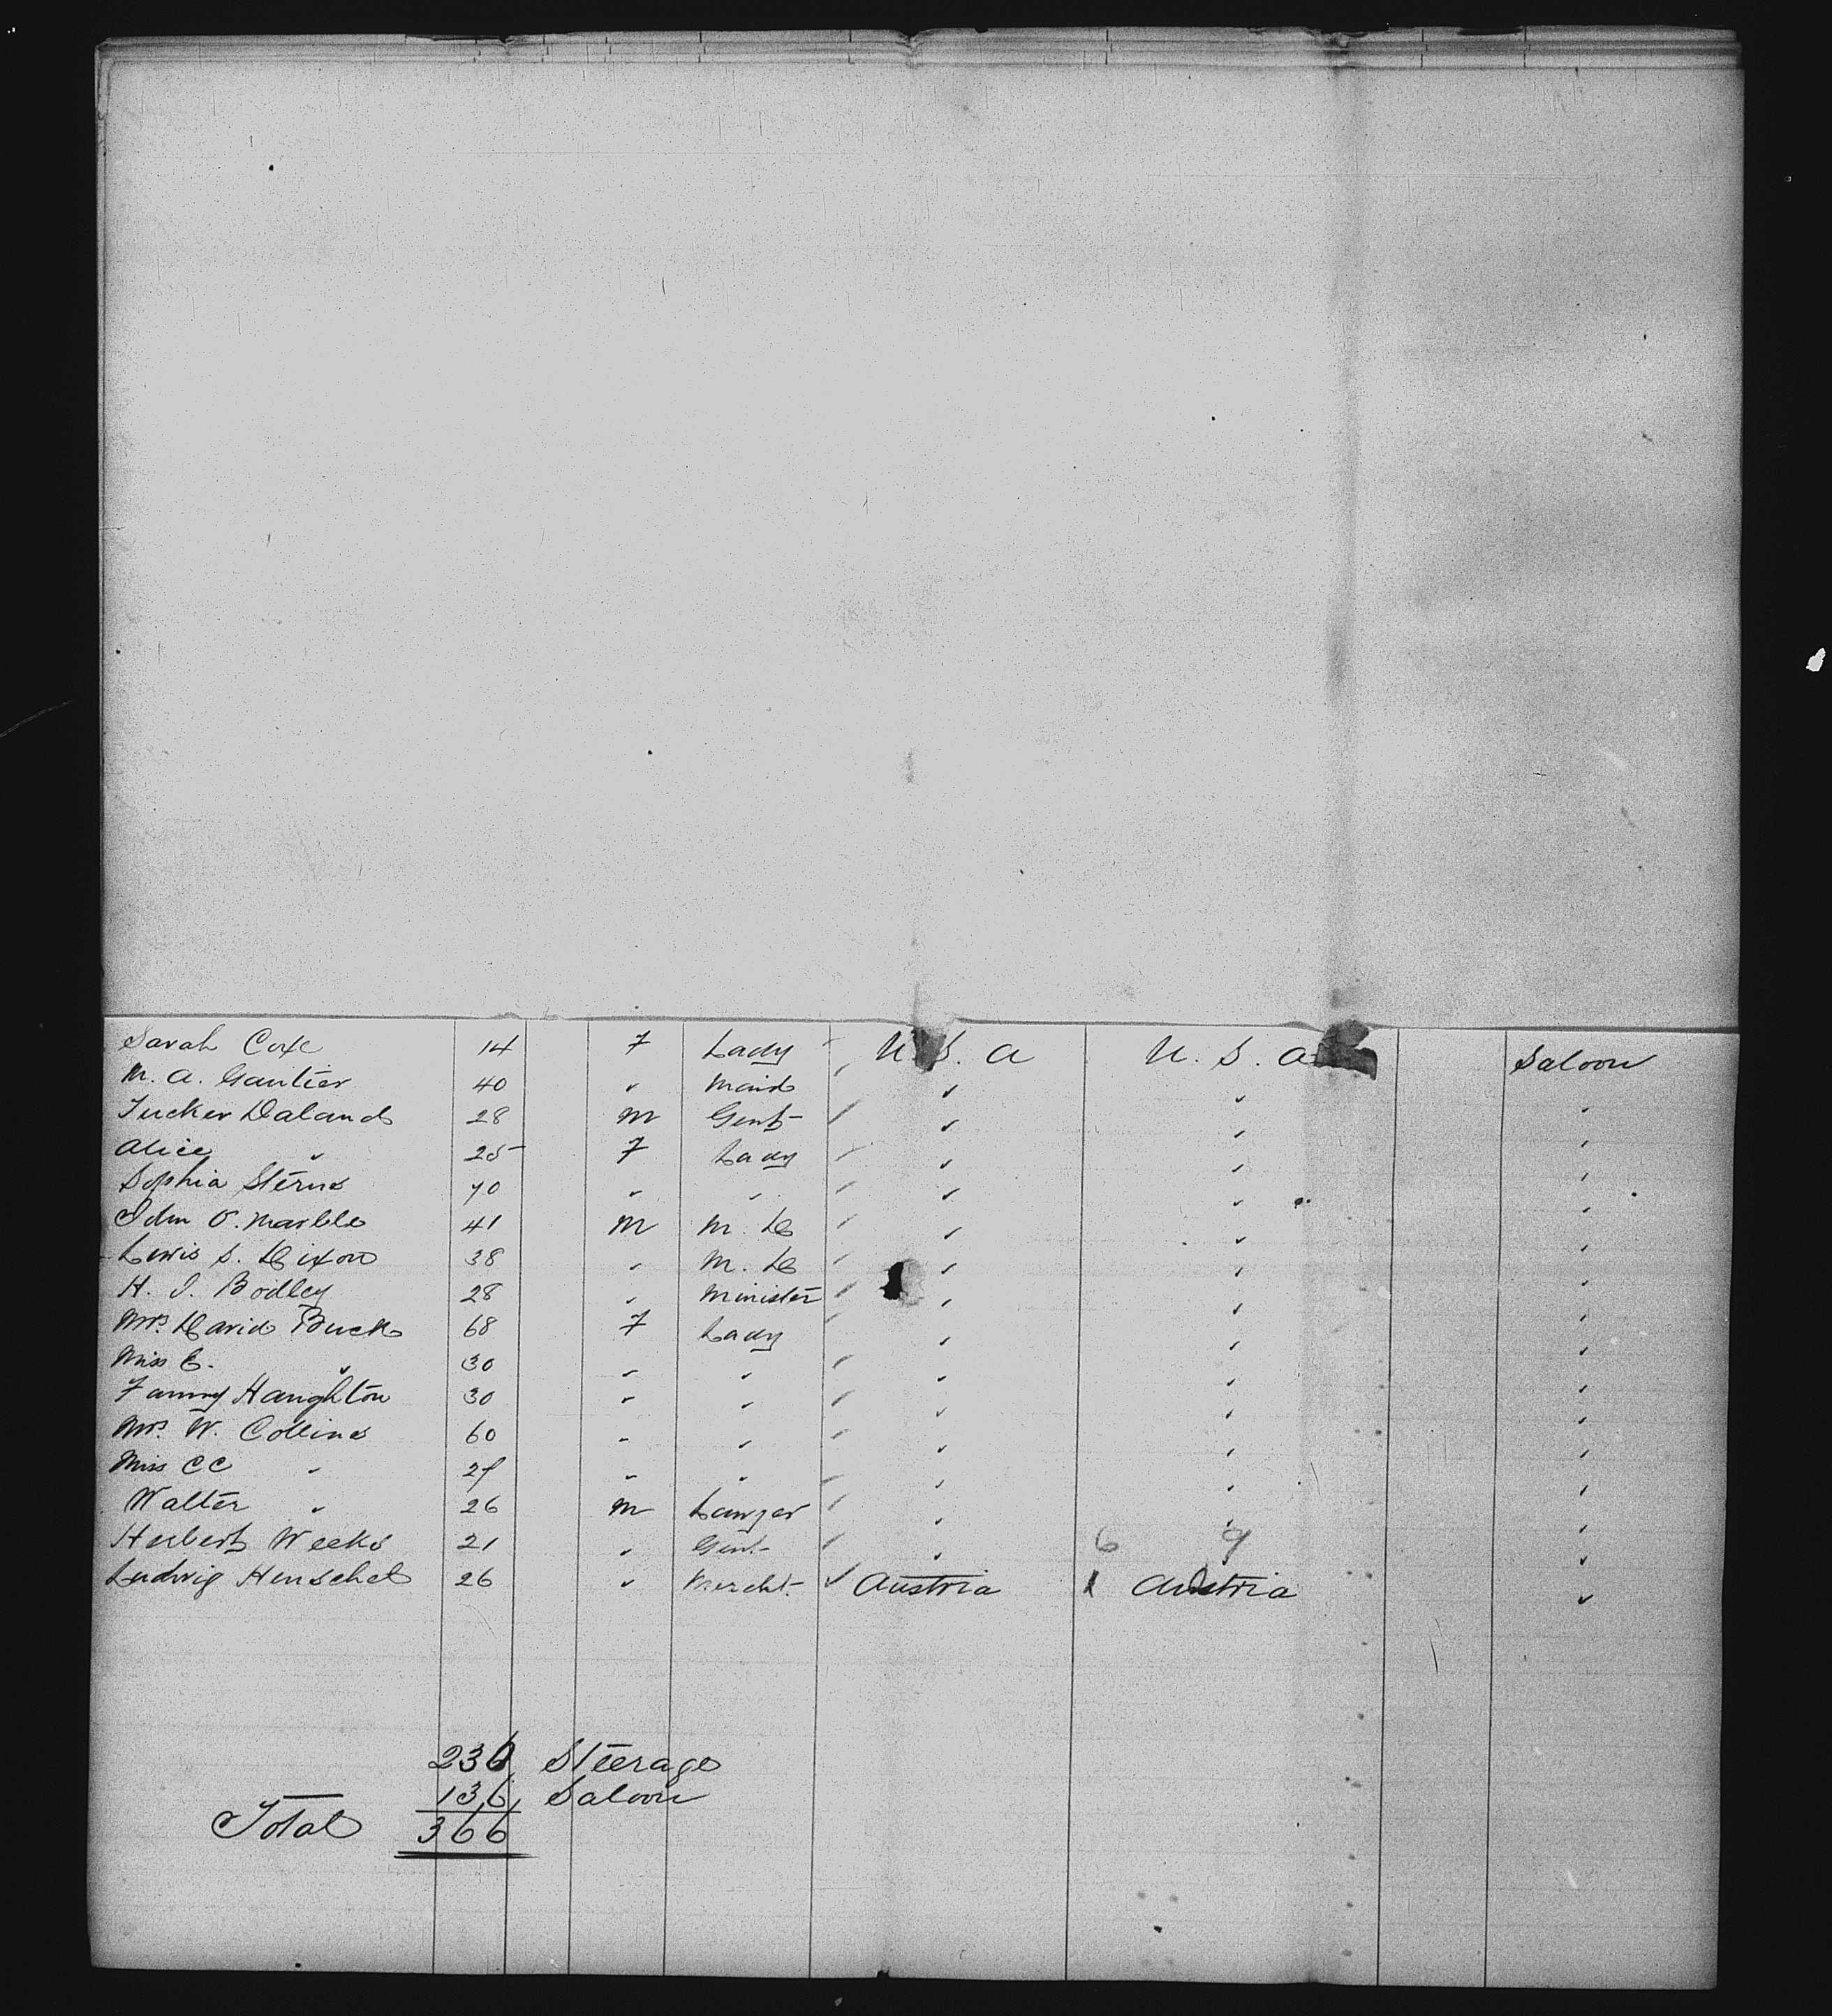 Sarah Coxe 14 F Lady U. S. A U. S. A Saloon
M. A. Gautier 40 " Maid " " "
Tucker Daland 28 M Gent " " "
Alice " 25 F Lady " " "
Sophia Sterns 70 " " " " "
John O. Marble 41 M M. D " " "
Lewis S. Dixon 38 " M. D " " "
H. I. Bodley 28 " Minister " " "
Mrs David Buck 68 F Lady " " "
Miss E. " 30 " " " " "
Fanny Haughton 30 " " " " "
Mrs W. Collins 60 " " " " "
Miss CC " 27 " " " " "
Walter " 26 M Lawyer " " "
Herbert Weeks 21 " Gent " 6 9 "
Ludwig Henschel 26 " Mercht. Austria 1 Austria "
230 Steerage
136 Saloon
Total 366